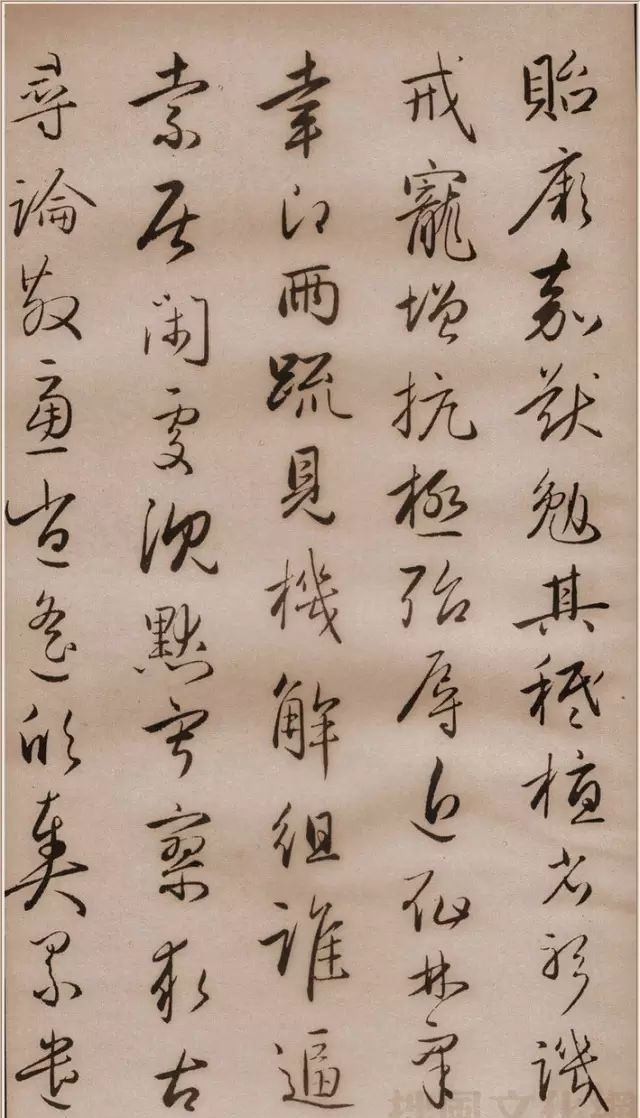 貽厥嘉猷勉其祗植省躬譏
戒寵增抗極殆辱近恥林皋
幸即兩疏見機解組誰逼
索居閑處沉默寂寥求古
尋論散慮逍遙欣奏累遣